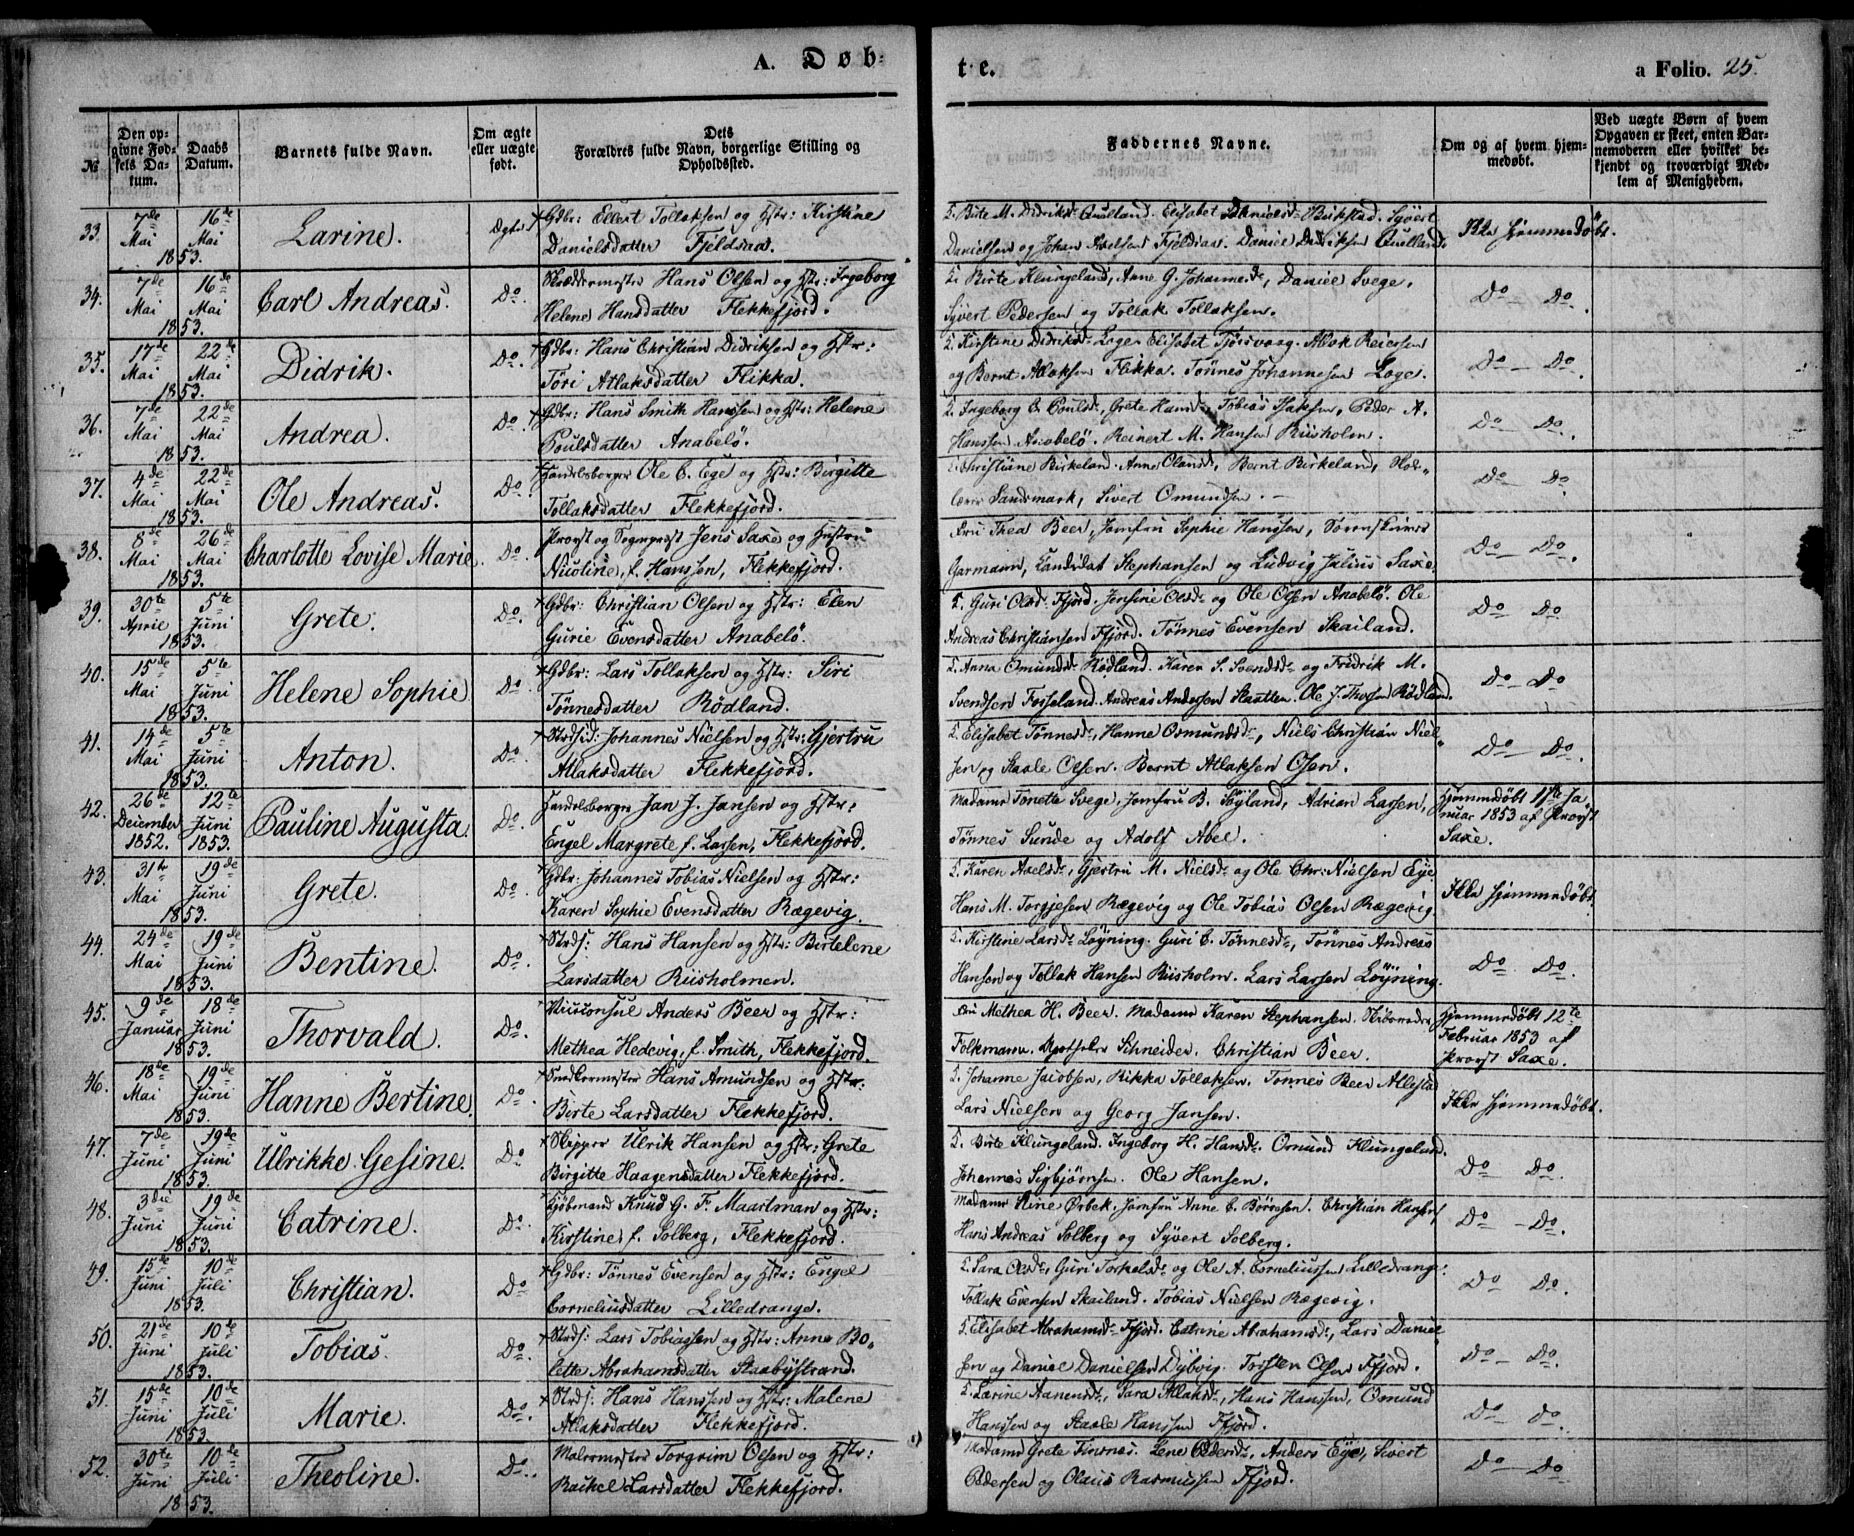 A. Døb-
te.
a Folio. 25.
№
Den op-
givne Fød-
sels Da-
tum.
Daabs
Datum.
Barnets fulde Navn.
Om ægte
eller uægte
født.
Dets
Forældres fulde Navn, borgerlige Stilling og
Opholdssted.
Faddernes Navne.
Om og af hvem hjem-
medøbt.
Ved uægte Børn af hvem
Opgaven er skeet, enten Bar-
nemoderen eller hvilket be-
kjendt og troværdigt Med-
lem af Menigheden.
33. 7de Mai 1853. 16de Mai Larine. Ægte.
Gdbr: Ellert Tollaksen og Hstr: Kirstine
Danielsdatter Fjeldsaa.
Birte M. Didriksd. Qvelland. Elisabet Birkstad. Syvert
Danielsen og Johan Axelsen Fjeldsaa. Daniel Didriksen Qvelland.
Ikke Hjemmedøbt.
34. 7de Mai 1853. 16de Mai Carl Andreas. Do.
Skræddermester Hans Olsen og Hstr: Ingeborg
Helene Hansdatter Flekkefjord.
Birte Klungeland, Anne G. Johannesd., Daniel Svege,
Syvert Pedersen og Tollak Tollaksen.
Do — Do.
35. 17de Mai 1853. 22de Mai Didrik. Do.
Gdbr: Hans Christian Didriksen og Hstr:
Töri Atlaksdatter Flikka.
Kirstine Didriksd. Loge. Elisabet Tjörsvaag. Atlak Reiersen
og Bernt Atlaksen Flikka. Tönnes Johannesen Loge.
Do — Do.
36. 7de Mai 1853. 22de Mai Andrea. Do.
Gdbr: Hans Smith Hanssen og Hstr: Helene
Poulsdatter Anabelö.
Ingeborg C. Poulsd., Grete Hansd., Tobias Isaksen, Peder A.
Hanssen Anabelö. Reinert M. Hansen Riisholm.
Do Do.
37. 4de Mai 1853. 22de Mai Ole Andreas. Do.
Handelsborger Ole C. Ege og Hstr: Birgitte
Tollaksdatter Flekkefjord.
Christiane Birkeland. Anne Olausd., Bernt Birkeland,
Sandsmark, Sivert Omundsen. —
Do — Do.
38. 8de Mai 1853. 26de Mai Charlotte Lovise Marie. Do.
Provst og Sognepræst Jens Saxe og Hustru
Nicoline, f. Hanssen, Flekkefjord.
Fru Thea Beer, Jomfru Sophie Hanssen, Sorenskriver
Garmann, Candidat Stephansen og Ludvig Julius Saxe.
Do — Do.
39. 30te April 1853. 5te Juni Grete. Do.
Gdbr: Christian Olsen og Hstr: Elen
Gurie Evensdatter Anabelö.
Guri Olsd. Fjord. Jensine Olsd. og Ole Olsen Anabelö. Ole
Andreas Christiansen Fjord. Tönnes Evensen Skailand.
Do Do.
40. 15de Mai 1853. 5te Juni Helene Sophie. Do.
Gdbr: Lars Tollaksen og Hstr: Siri
Tönnesdatter Rödland.
Anna Omundsd. Rödland. Karen S. Svendsd. og Fredrik M.
Svendsen Forseland. Andreas Andersen Staatten. Ole J. Thorsen Rödland.
Do — Do
41. 14de Mai 1853. 5te Juni Anton. Do.
Strdsid: Johannes Nielsen og Hstr: Gjertru
Atlaksdatter Flekkefjord.
Elisabet Tönnesd., Hanne Osmundsd., Niels Christian Niel-
sen og Staale Olsen. Bernt Atlaksen Osen.
Do — Do.
42. 26de December 1852. 12te Juni 1853. Pauline Augusta. Do.
Handelsborger Jan J. Jansen og Hstr:
Engel Margrete f. Larsen, Flekkefjord.
Madame Tonette Svege, Jomfru B. Söyland, Adrian Larsen,
Tönnes Sunde og Adolf Abel.
Hjemmedöbt 17de Ja-
nuar 1853 af Provst
Saxe.
43. 31te Mai 1853. 19de Juni Grete. Do.
Gdbr: Johannes Tobias Nielsen og Hstr:
Karen Sophie Evensdatter Rægevig.
Karen Axelsd., Gjertru M. Nielsd. og Ole Chr: Nielsen Eye.
Hans M. Torgjesen Rægevig og Ole Tobias Olsen Rægevig.
Ikke Hjemmedöbt.
44. 24de Mai 1853. 19de Juni Bentine. Do.
Strds: Hans Hansen og Hstr: Birtelene
Larsdatter Riisholmen.
Kirstine Larsd. Löyning. Guri C. Tönnesd., Tönnes Andreas
Hansen og Tollak Hansen Riisholm. Lars Larsen Löyning.
Do Do.
45. 9de Januar 1853. 18de Juni Thorvald. Do.
Viceconsul Anders Beer og Hstr:
Methea Hedevig, f. Smith, Flekkefjord.
Fru Methea H. Beer. Madame Karen Stephansen. Skibsreder
Folkmann. Apotheker Schneider. Christian Beer.
Hjemmedöbt 12te
Februar 1853 af
Provst Saxe.
46. 18de Mai 1853. 19de Juni Hanne Bertine. Do.
Snedkermester Hans Amundsen og Hstr:
Birte Larsdatter Flekkefjord.
Johanne Jacobsen, Rikka Tollaksen. Tonnes Beer Allestad
Lars Nielsen og Georg Jansen.
Ikke Hjemmedöbt.
47. 7de Juni 1853. 19de Juni Ulrikke Gesine. Do
Skipper Ulrik Hansen og Hstr: Grete
Birgitte Haagensdatter Flekkefjord.
Birte Klungeland. Ingeborg H. Hansd. Omund Klungeland.
Johannes Sigbjørnsen. Ole Hansen.
Do Do.
48. 3die Juni 1853. 19de Juni Catrine. Do.
Kjöbmand Knud G. F. Maartman og Hstr:
Kirstine, f. Solberg, Flekkefjord.
Madame Stine Ørbek. Jomfru Anne C. Börresen. Christian Hansen,
Hans Andreas Solberg og Syvert Solberg.
Do — Do.
49. 15de Juni 1853. 10de Juli Christian. Do
Gdbr: Tönnes Evensen og Hstr: Engel
Corneliusdatter Lilledrange.
Sara Olsd., Guri Torkelsd. og Ole A. Corneliussen Lilledrange.
Tollak Evensen Skailand. Tobias Nielsen Rægevig.
Do Do.
50. 21de Juni 1853. 10de Juli Tobias. Do.
Strds: Lars Tobiassen og Hstr: Anne Bo-
lette Abrahamsdatter Staabystrand.
Elisabet Abrahamsd. Fjord. Catrine Abrahamsd., Lars Daniel-
sen og Daniel Danielsen Dybvig. Torsten Olsen Fjord.
Do — Do.
51. 15de Juni 1853. 10de Juli Marie. Do.
Strds: Hans Hanssen og Hstr: Malene
Atlaksdatter Flekkefjord.
Larine Aanensd., Sara Atlaksd., Hans Hanssen, Omund
Hanssen og Staale Hanssen Fjord.
Do Do.
52. 30te Juni 1853. 10de Juli Theoline. Do.
Malermester Torgrim Olsen og Hstr:
Rachel Larsdatter Flekkefjord.
Madame Grete Finsnes. Lene Pedersd., Anders Eye, Sivert
Pedersen og Olaus Rasmussen Fjord.
Do — Do.